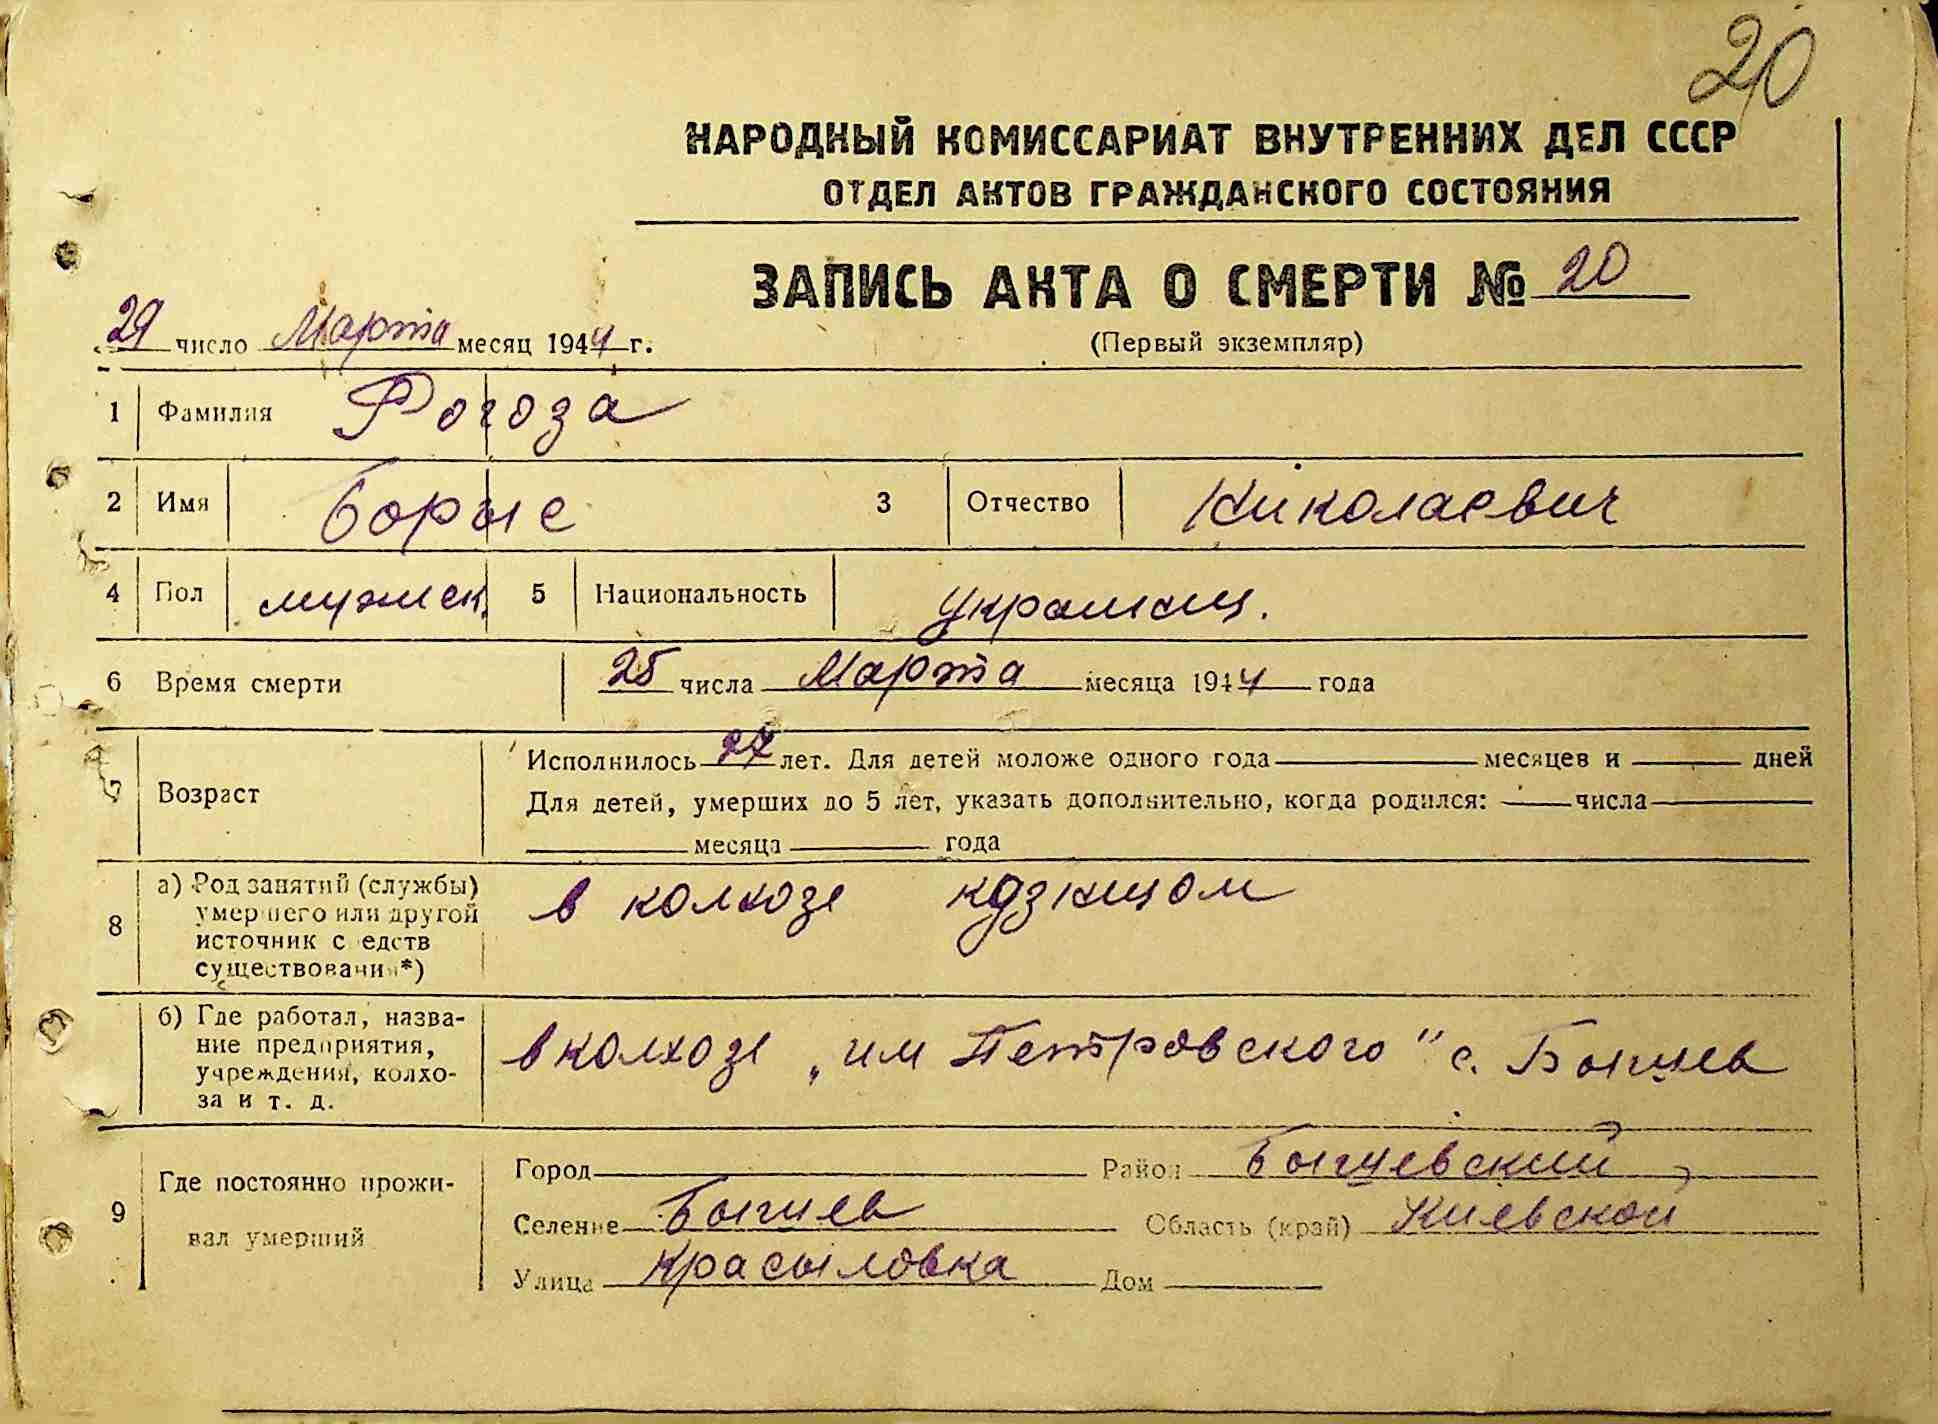 20
НАРОДНЫЙ КОМИССАРИАТ ВНУТРЕННИХ ДЕЛ СССР
ОТДЕЛ АКТОВ ГРАЖДАНСКОГО СОСТОЯНИЯ
ЗАПИСЬ АКТА О СМЕРТИ № 20
29 число Марта месяц 1944 г.
(Первый экземпляр)
1 Фамилия Рогоза
2 Имя Борыс 3 Отчество Николаевич
4 Пол мужск. 5 Национальность
6 Время смерти 25 числа Марта месяца 1944 года
7 Возраст
Исполнилось 27 лет. Для детей моложе одного года месяцев и дней
Для детей, умерших до 5 лет, указать дополнительно, когда родился: числа
месяца года
8 а) Род занятий (службы) умершего или другой источник средств существования*)
в колхозе
б) Где работал, название предприятия, учреждения, колхоза и т. д.
в колхозе „им Петровского" с. Бышев
9 Где постоянно проживал умерший
Город Район Бышевский
Селение Бышев Область (край) Киевской
Улица Красыловка Дом